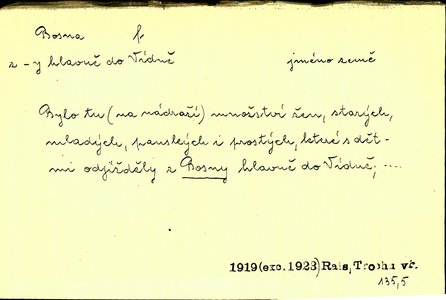 Bosna f.
z -y hlavně do Vídně jméno země
Bylo tu (na nádraží) množství žen, starých,
mladých, panských i prostých, které s dět-
mi odjížděly z Bosny hlavně do Vídně, ....
1919 (exc. 1923) Rais, Trochu vz.
135,5